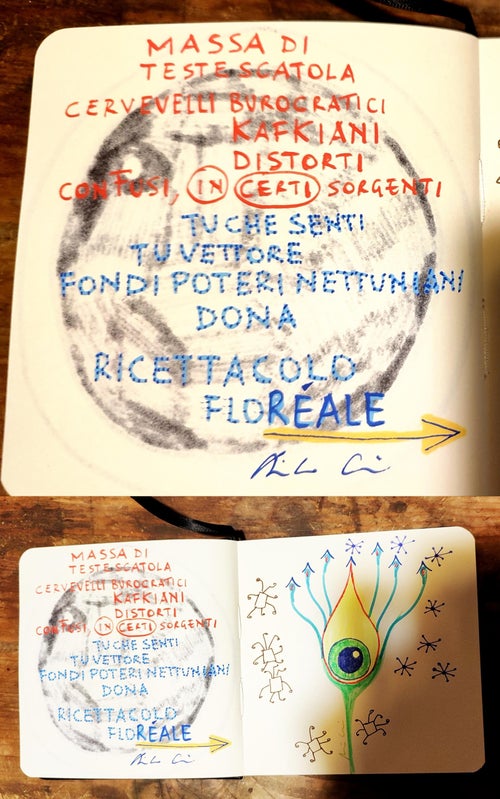 MASSA DI
TESTE SCATOLA
CERVEVELLI BUROCRATICI
KAFKIANI
DISTORTI
CONFUSI, IN CERTI SORGENTI
TU CHE SENTI
TU VETTORE
FONDI POTERI NETTUNIANI
DONA
RICETTACOLO
FLORÉALE
MASSA DI
TESTE SCATOLA
CERVEVELLI BUROCRATICI
KAFKIANI
DISTORTI
CONFUSI, IN CERTI SORGENTI
TU CHE SENTI
TU VETTORE
FONDI POTERI NETTUNIANI
DONA
RICETTACOLO
FLORÉALE